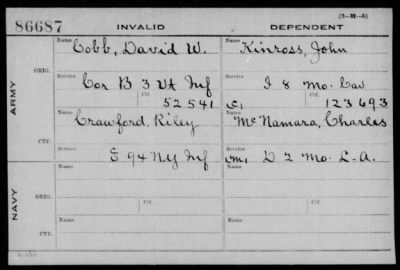 86687 INVALID DEPENDENT (3-M-5)
ARMY
ORIG.
Name Cobb, David W. Name Kinross, John
Service Cor B 3 Vt Inf Service I 8 Mo. Cav
Ctf. 52541 (C) Ctf. 123693
CTF.
Name Crawford, Riley Name McNamara, Charles
Service E 94 NY Inf Service (M) D 2 Mo. L.A.
NAVY
ORIG.
Name Name
Service Ctf. Service Ctf.
CTF.
Name Name
Service Service